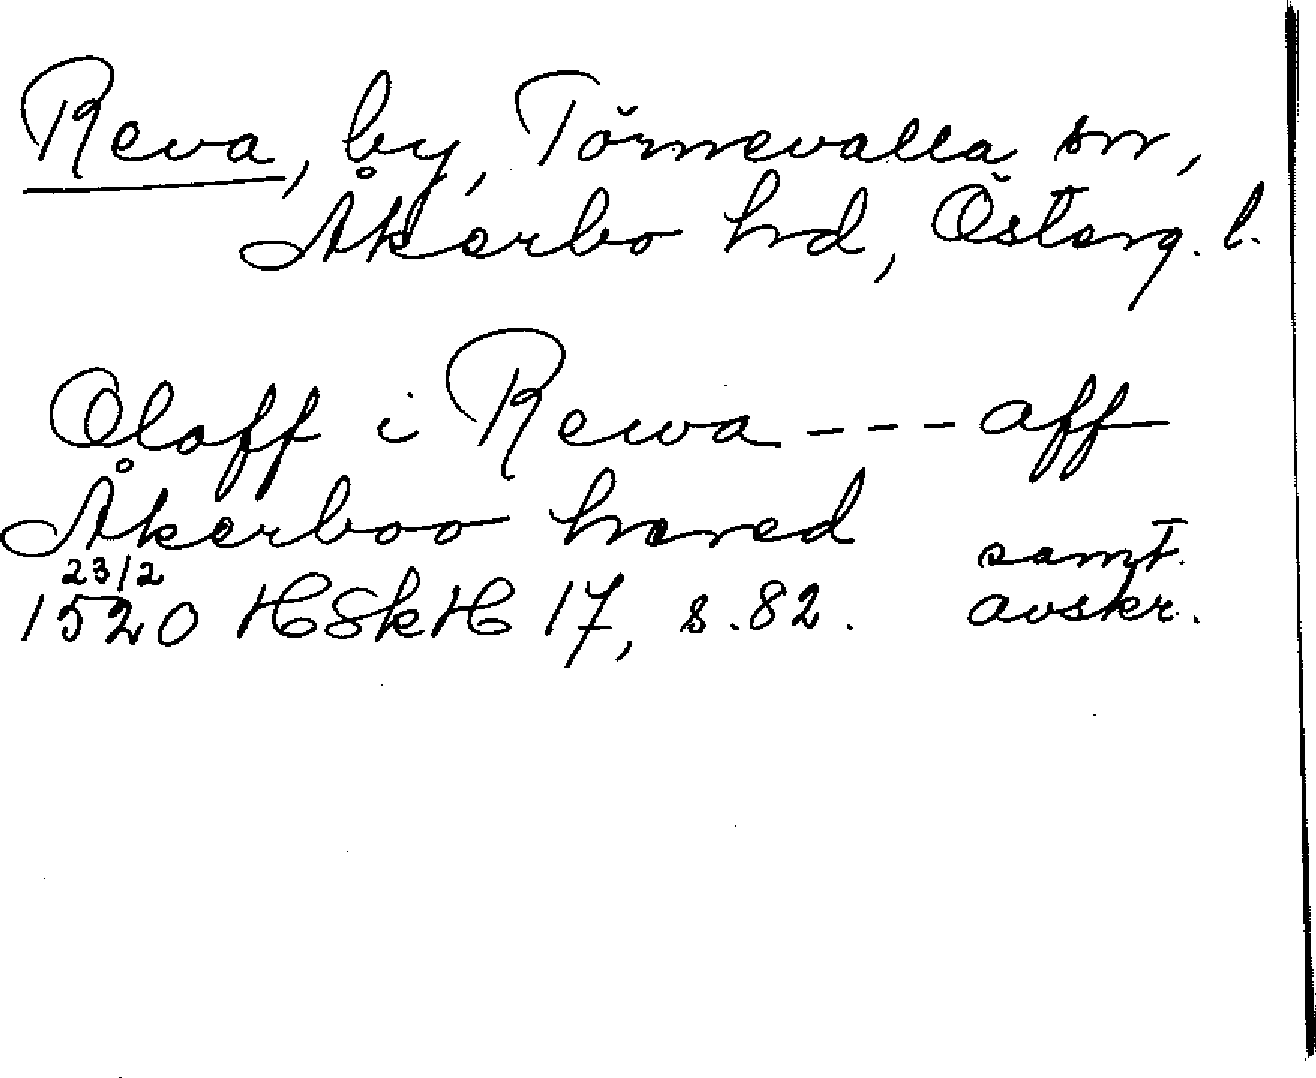 Reva, by, Törnevalla sn,
Åkerbo hd, Österg. l.
Oloff i Rewa --- aff
Åkerboo hered
samt.
23/2
1520 HSkH 17, s. 82. avskr.